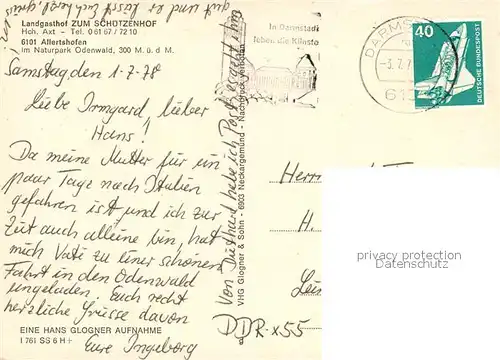 Landgasthof ZUM SCHÜTZENHOF
Hch. Axt - Tel. 0 61 67 / 72 10
6101 Allertshofen
im Naturpark Odenwald, 300 M. ü. d. M.
Samstag den 1-7-78
Liebe Irmgard, lieber
Hans!
Da meine Mutter für ein
paar Tage nach Italien
gefahren ist und ich zur
Zeit auch alleine bin, hat
mich Vati zu einer schönen
Fahrt in den Odenwald
eingeladen. Euch recht
herzliche Grüsse davon
Eure Ingeborg
EINE HANS GLOGNER AUFNAHME
I 761 SS 6 H+
gut und er lässt Euch
Von habe ich Post
VHG Glogner & Sohn - 6903 Neckargemünd - Nachdruck verboten
In Darmstadt
leben die Künste
DARMS
-3.7.7
61
40
DEUTSCHE BUNDESPOST
Herrn
H.
privacy protection
Datenschutz
DDR-x55